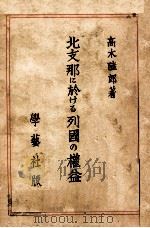 高木陸郎著
北支那に於ける列國の權益
學藝社版